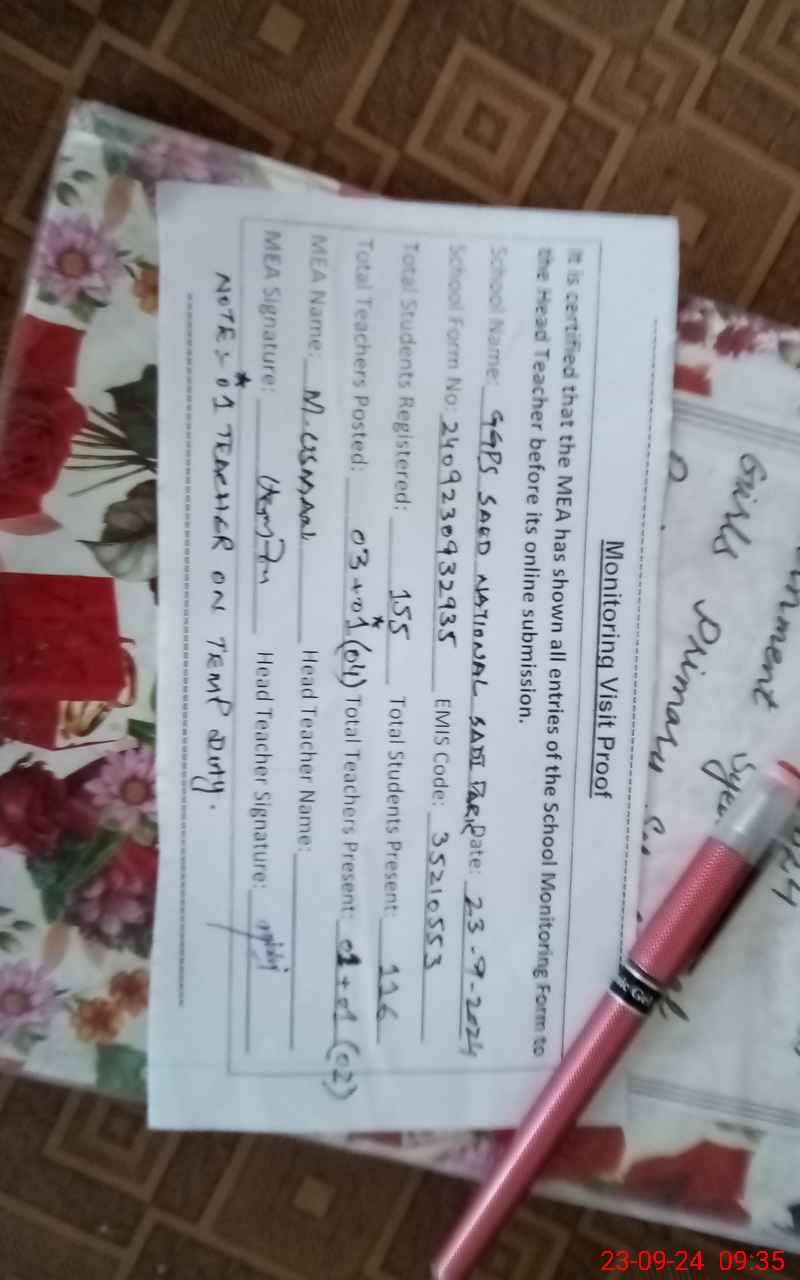 Monitoring Visit Proof
It is certified that the MEA has shown all entries of the School Monitoring Form to
the Head Teacher before its online submission.
School Name: GGPS SAED NATIONAL SADI PARK Date: 23-9-2024
School Form No: 2409230932935 EMIS Code: 35210553
Total Students Registered: 155 Total Students Present: 116
Total Teachers Posted: 03+01* (04) Total Teachers Present: 01+01 (02)
MEA Name: M. USMAN Head Teacher Name:
MEA Signature: Head Teacher Signature:
NOTE:- *01 TEACHER ON TEMP DUTY.
Girls Primary
23-09-24 09:35